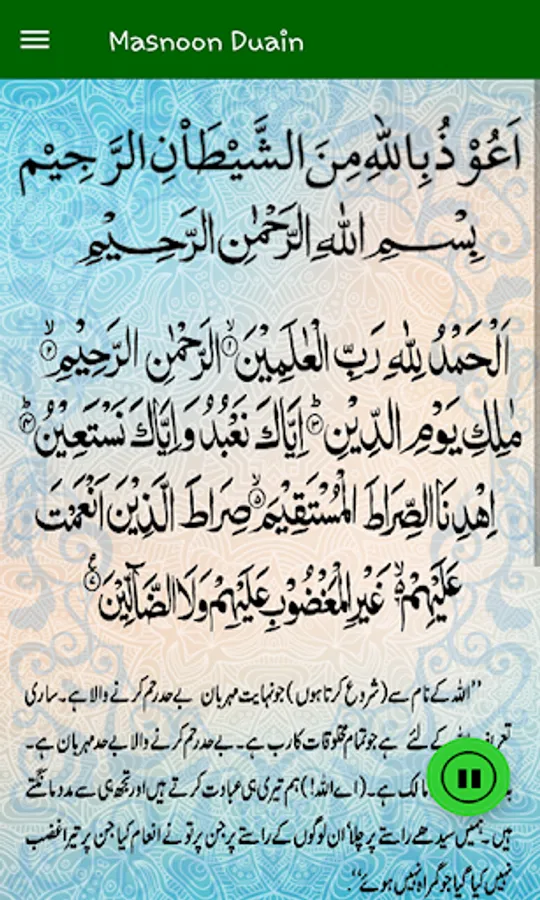 Masnoon Duain
اَعُوْذُ بِاللهِ مِنَ الشَّيْطَاْنِ الرَّجِيْمِ
بِسْمِ اللهِ الرَّحْمٰنِ الرَّحِيْمِ
اَلْحَمْدُ لِلّٰهِ رَبِّ الْعٰلَمِيْنَ ۙ۱ الرَّحْمٰنِ الرَّحِيْمِ ۙ۲
مٰلِكِ يَوْمِ الدِّيْنِ ؕ۳ اِيَّاكَ نَعْبُدُ وَاِيَّاكَ نَسْتَعِيْنُ ؕ۴
اِهْدِنَا الصِّرَاطَ الْمُسْتَقِيْمَ ۙ۵ صِرَاطَ الَّذِيْنَ اَنْعَمْتَ
عَلَيْهِمْ ۙ۶ غَيْرِ الْمَغْضُوْبِ عَلَيْهِمْ وَلَا الضَّآلِّيْنَ ۷
”اللہ کے نام سے (شروع کرتا ہوں) جو نہایت مہربان بے حد رحم کرنے والا ہے۔ ساری
کے لئے ہے جو تمام مخلوقات کا رب ہے۔ بے حد رحم کرنے والا بے حد مہربان ہے۔
مالک ہے۔ (اے اللہ!) ہم تیری ہی عبادت کرتے ہیں اور تجھ ہی سے مدد مانگتے
ہیں۔ ہمیں سیدھے راستے پر چلا‘ ان لوگوں کے راستے پر جن پر تو نے انعام کیا جن پر تیرا غضب
نہیں کیا گیا جو گمراہ نہیں ہوئے“۔